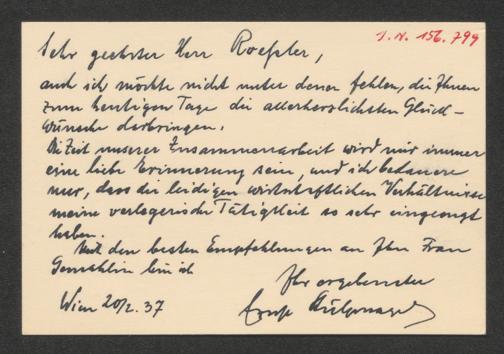 J.N. 156.799
Sehr geehrter Herr Roeßler,
auch ich möchte nicht unter denen fehlen, die Ihnen
zum heutigen Tage die allerherzlichsten Glück-
wünsche darbringen.
Die Zeit unserer Zusammenarbeit wird mir immer
eine liebe Erinnerung sein, und ich bedauere
nur, dass die leidigen wirtschaftlichen Verhältnisse
meine verlegerische Tätigkeit so sehr eingeengt
haben.
Mit den besten Empfehlungen an Ihre Frau
Gemahlin bin ich
Ihr ergebenster
Wien 20/2. 37
Ernst